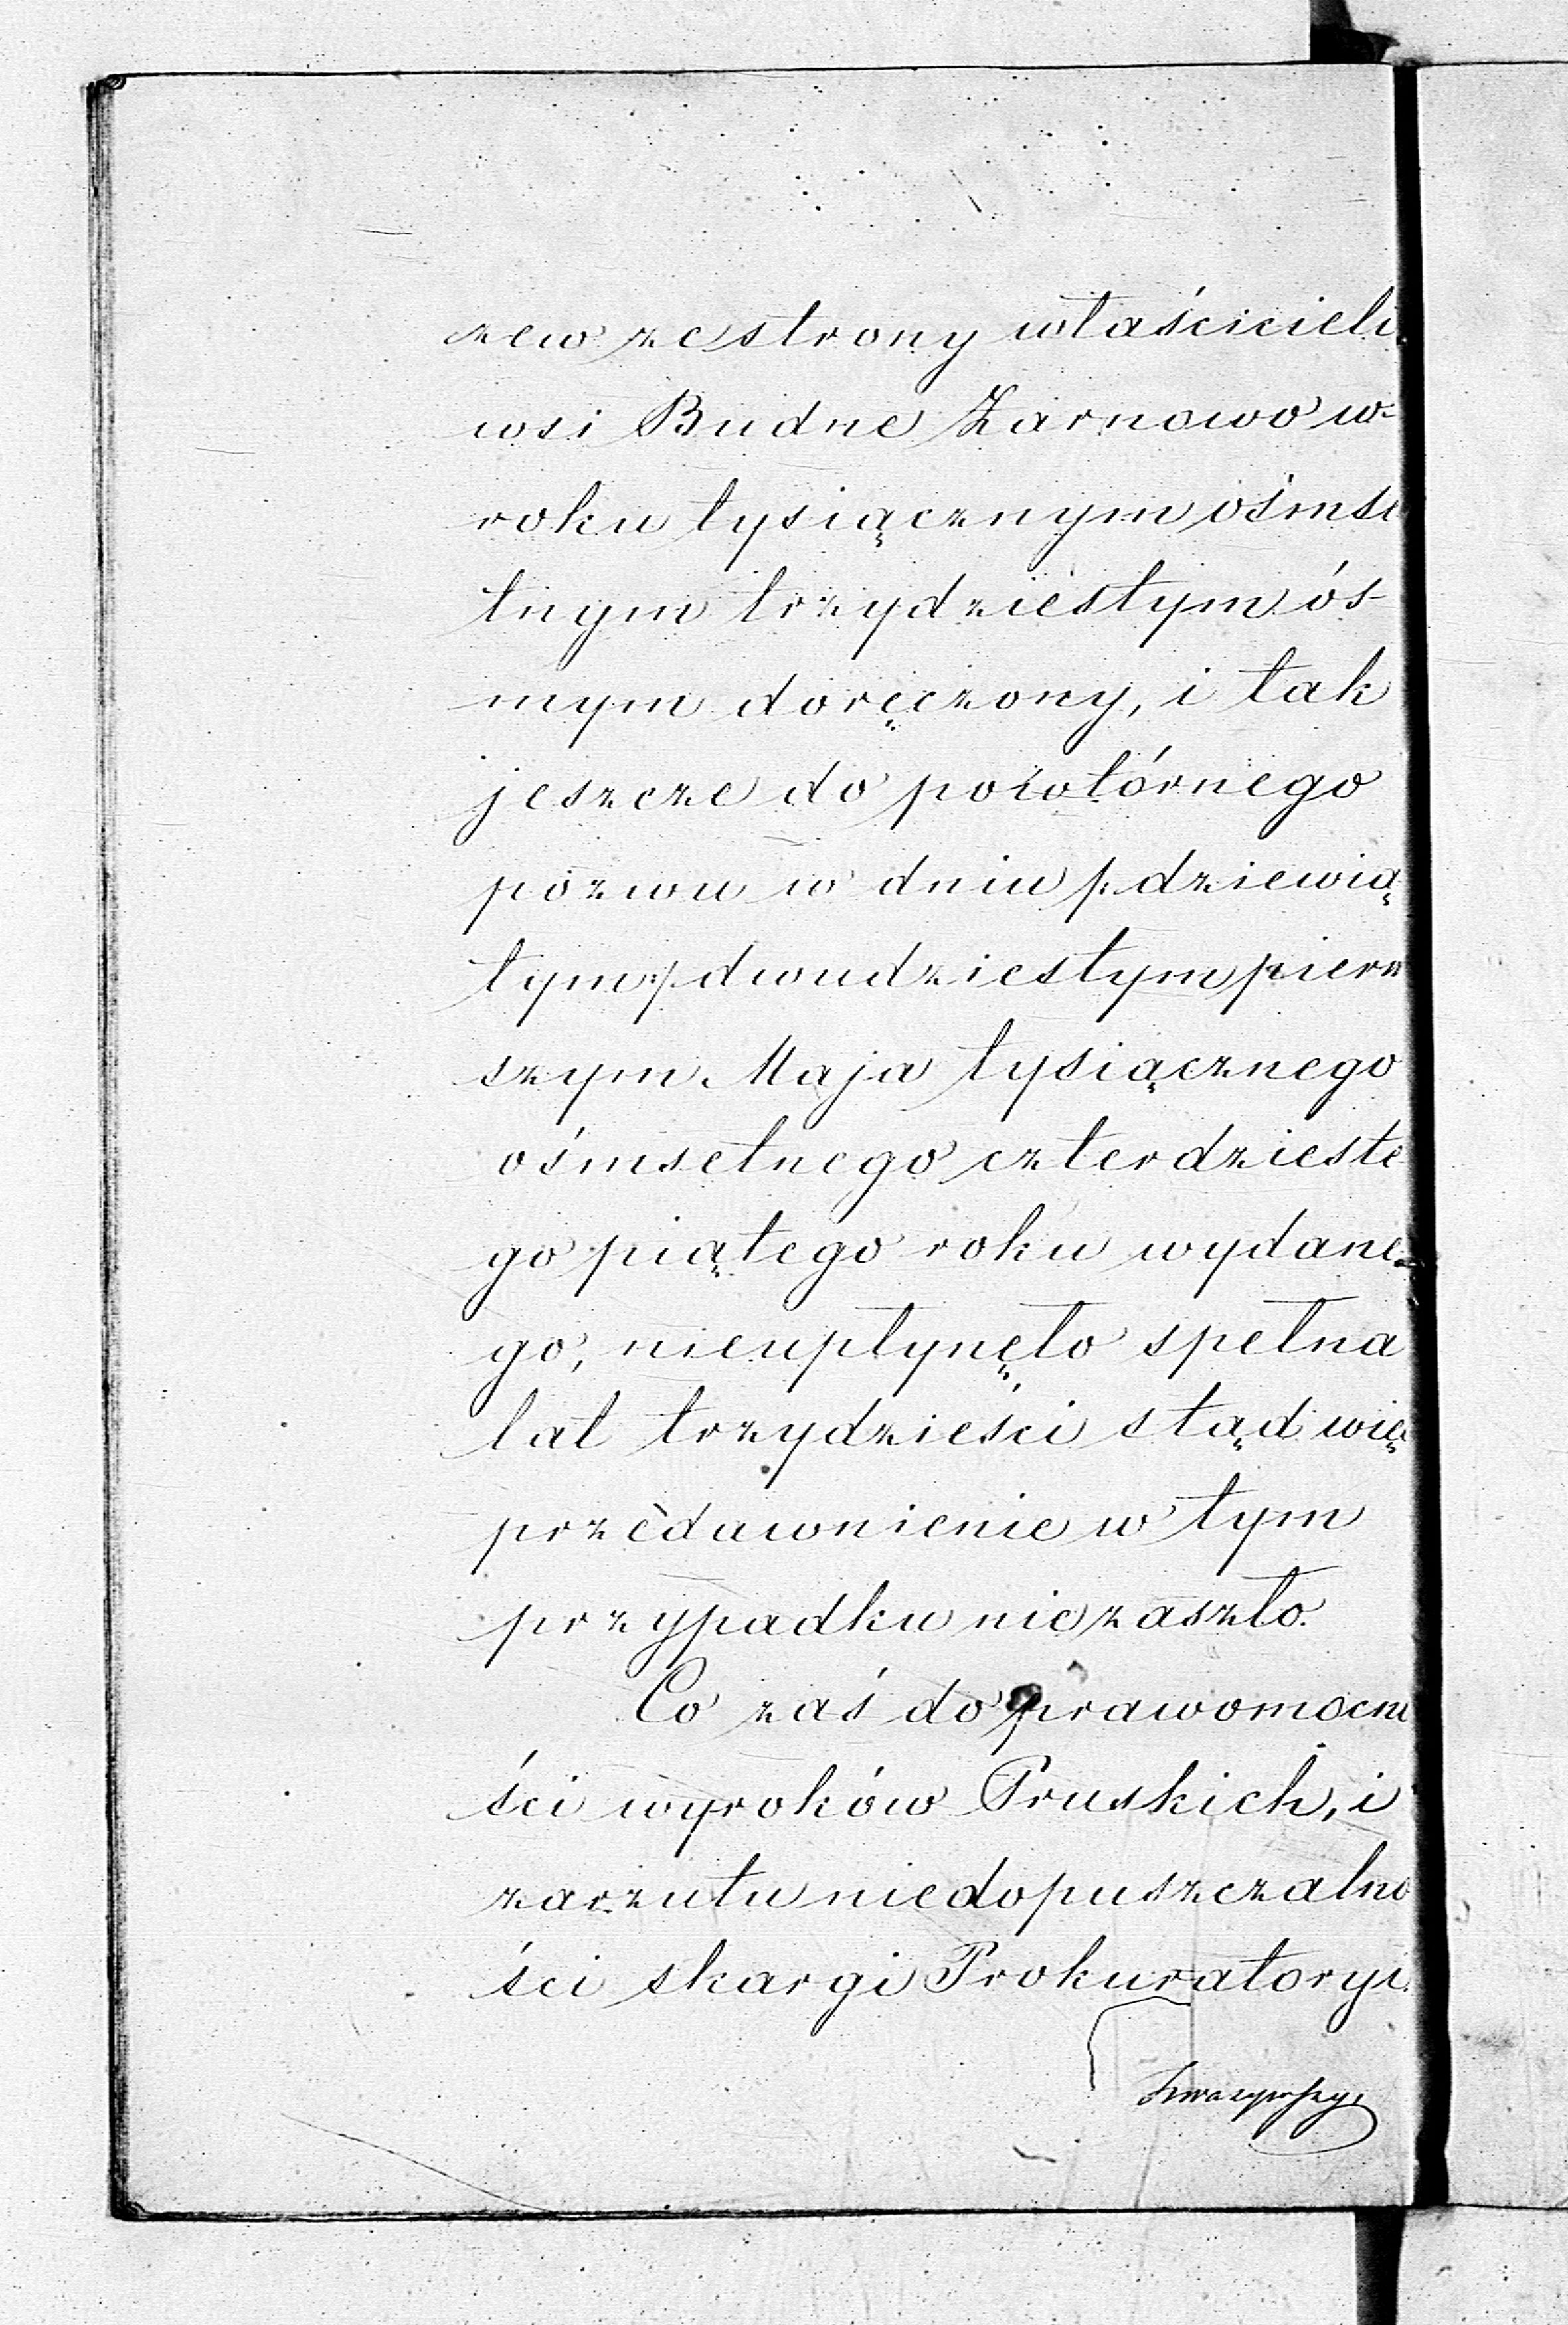 zew ze strony właścicieli
wsi Budne Żarnowo w
roku tysiącznym ośmse
tnym trzydziestym ós-
mym doręczony, i tak
jeszcze do powtórnego
pozwu w dniu /: dziewią
tym :/ dwudziestym pierw
szym Maja tysiącznego
ośmsetnego czterdzieste
go piątego roku wydane
go, nieupłynęło spełna
lat trzydzieści stąd wię
przedawnienie w tym
przypadku nie zaszło.
Co zaś do prawomocno
ści wyroków Pruskich, i
zarzutu niedopuszczalno
ści skargi Prokuratoryi